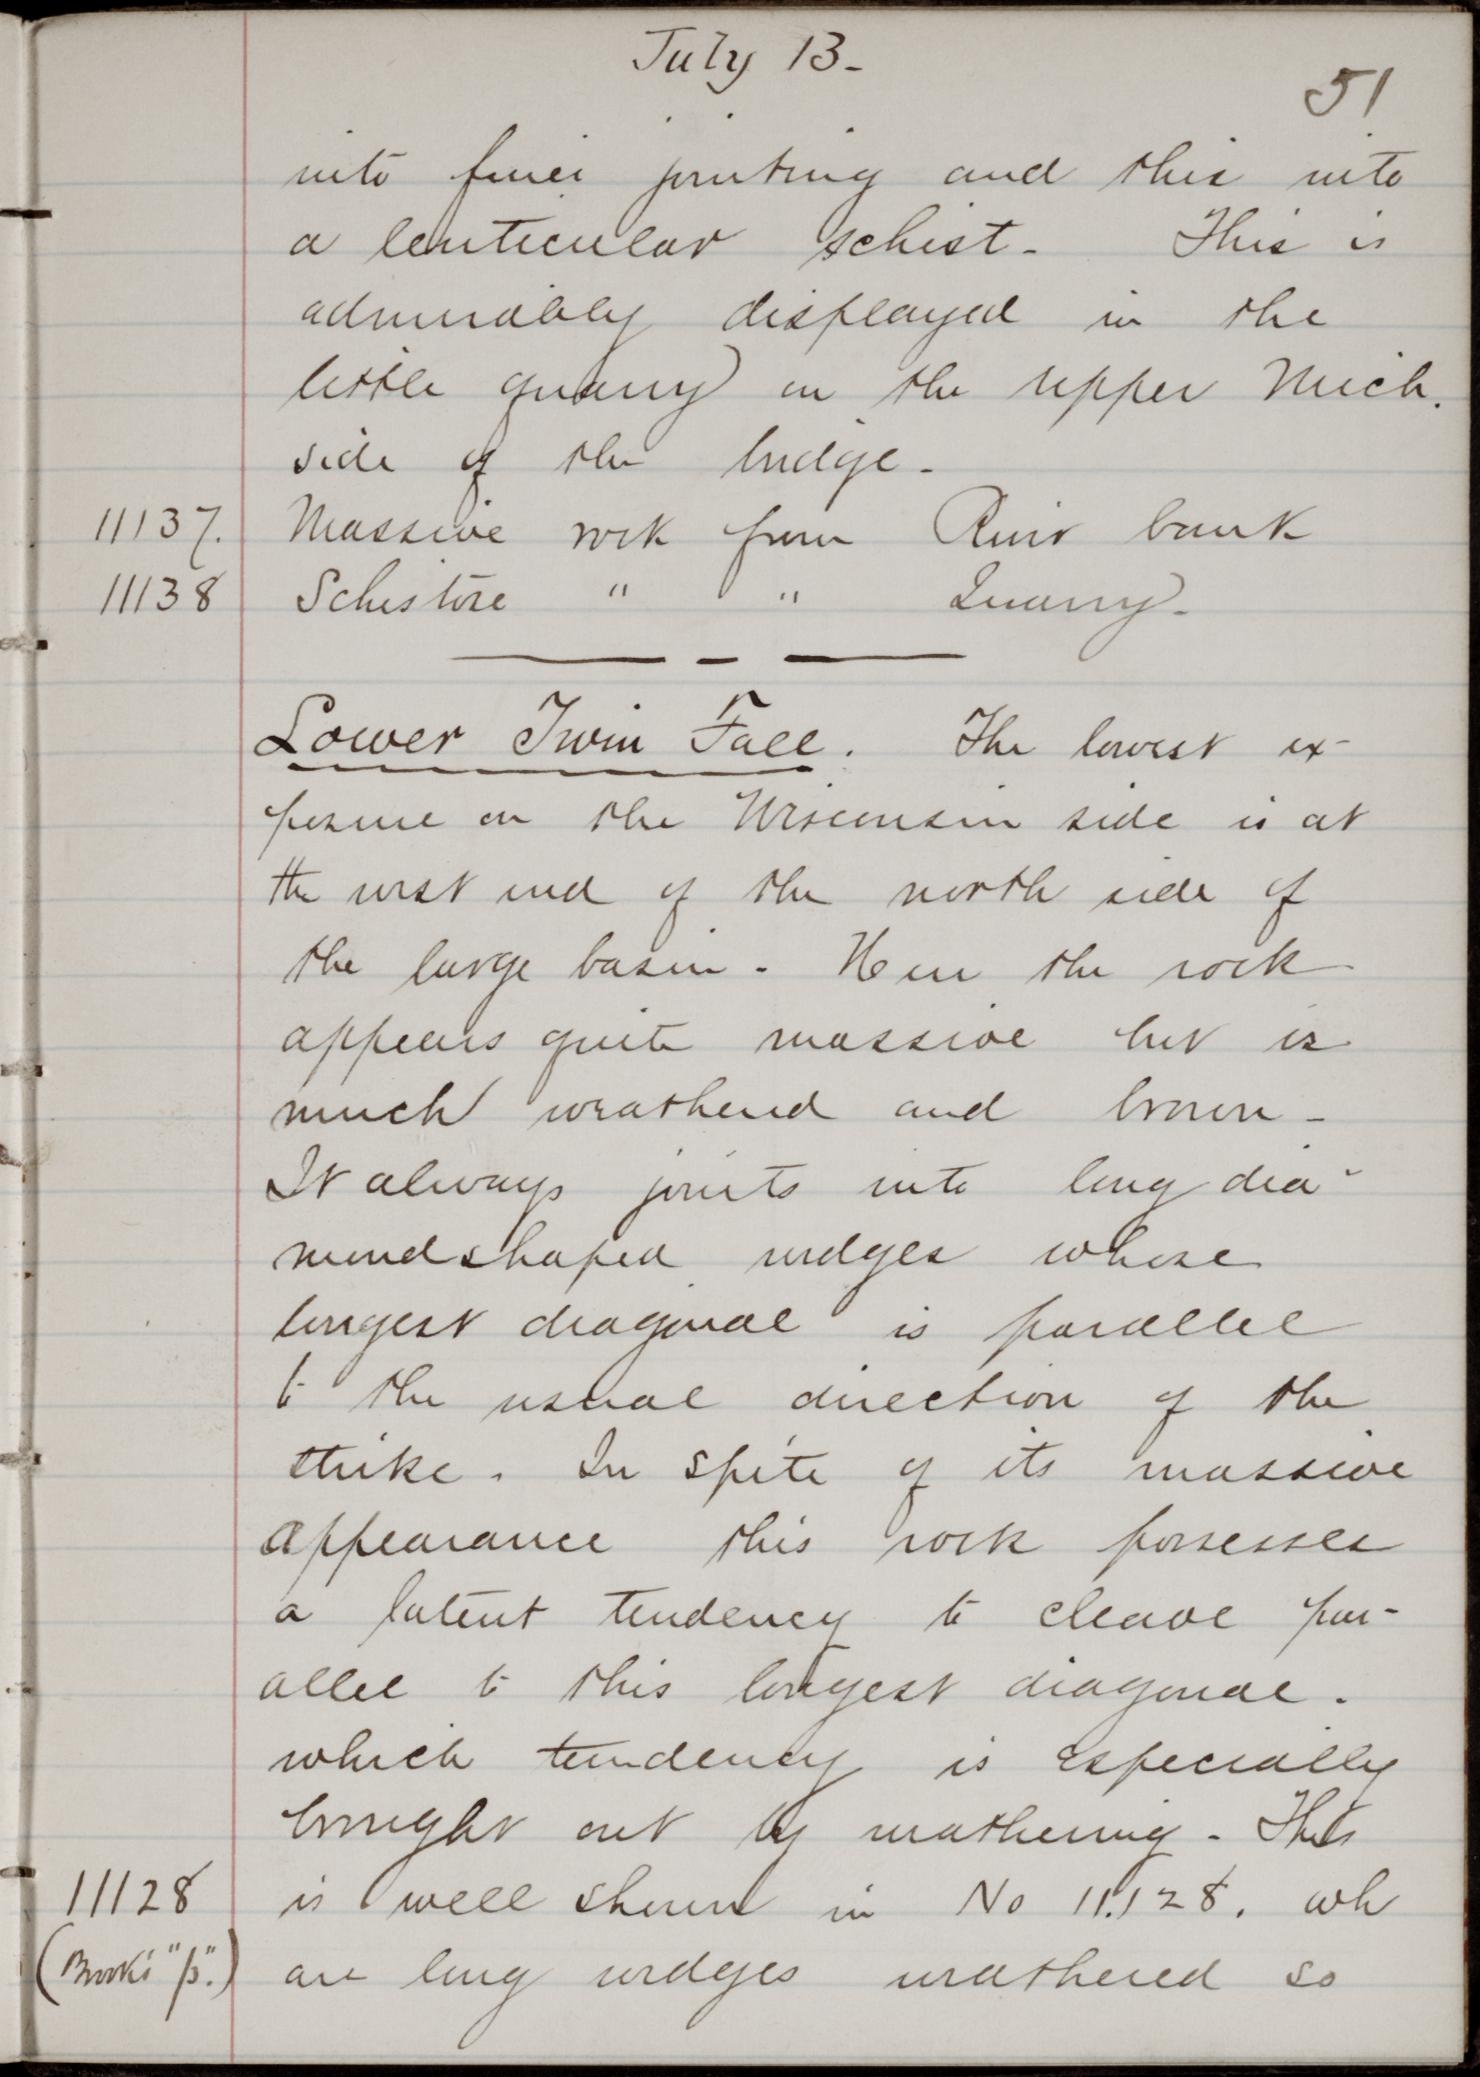 July 13-
51
into finer jointing and this into
a lenticular schist- This is
admirably displayed in the
little quarry on the upper Mich.
side of the bridge-
11137. Massive rock from River bank
11138 Schistose " " Quarry-
Lower Twin Fall. The lowest ex-
posure on the Wisconsin side is at
the west end of the north side of
the large basin. Here the rock
appears quite massive but is
much weathered and brown-
It always joints into long dia-
mond shaped wedges whose
longest diagonal is parallel
to the usual direction of the
strike. In spite of its massive
appearance this rock possesses
a latent tendency to cleave par-
allel to this longest diagonal.
which tendency is especially
brought out by weathering- This
11128 is well shown in No 11.128. wh
(Brooks' "β".) are long wedges weathered so